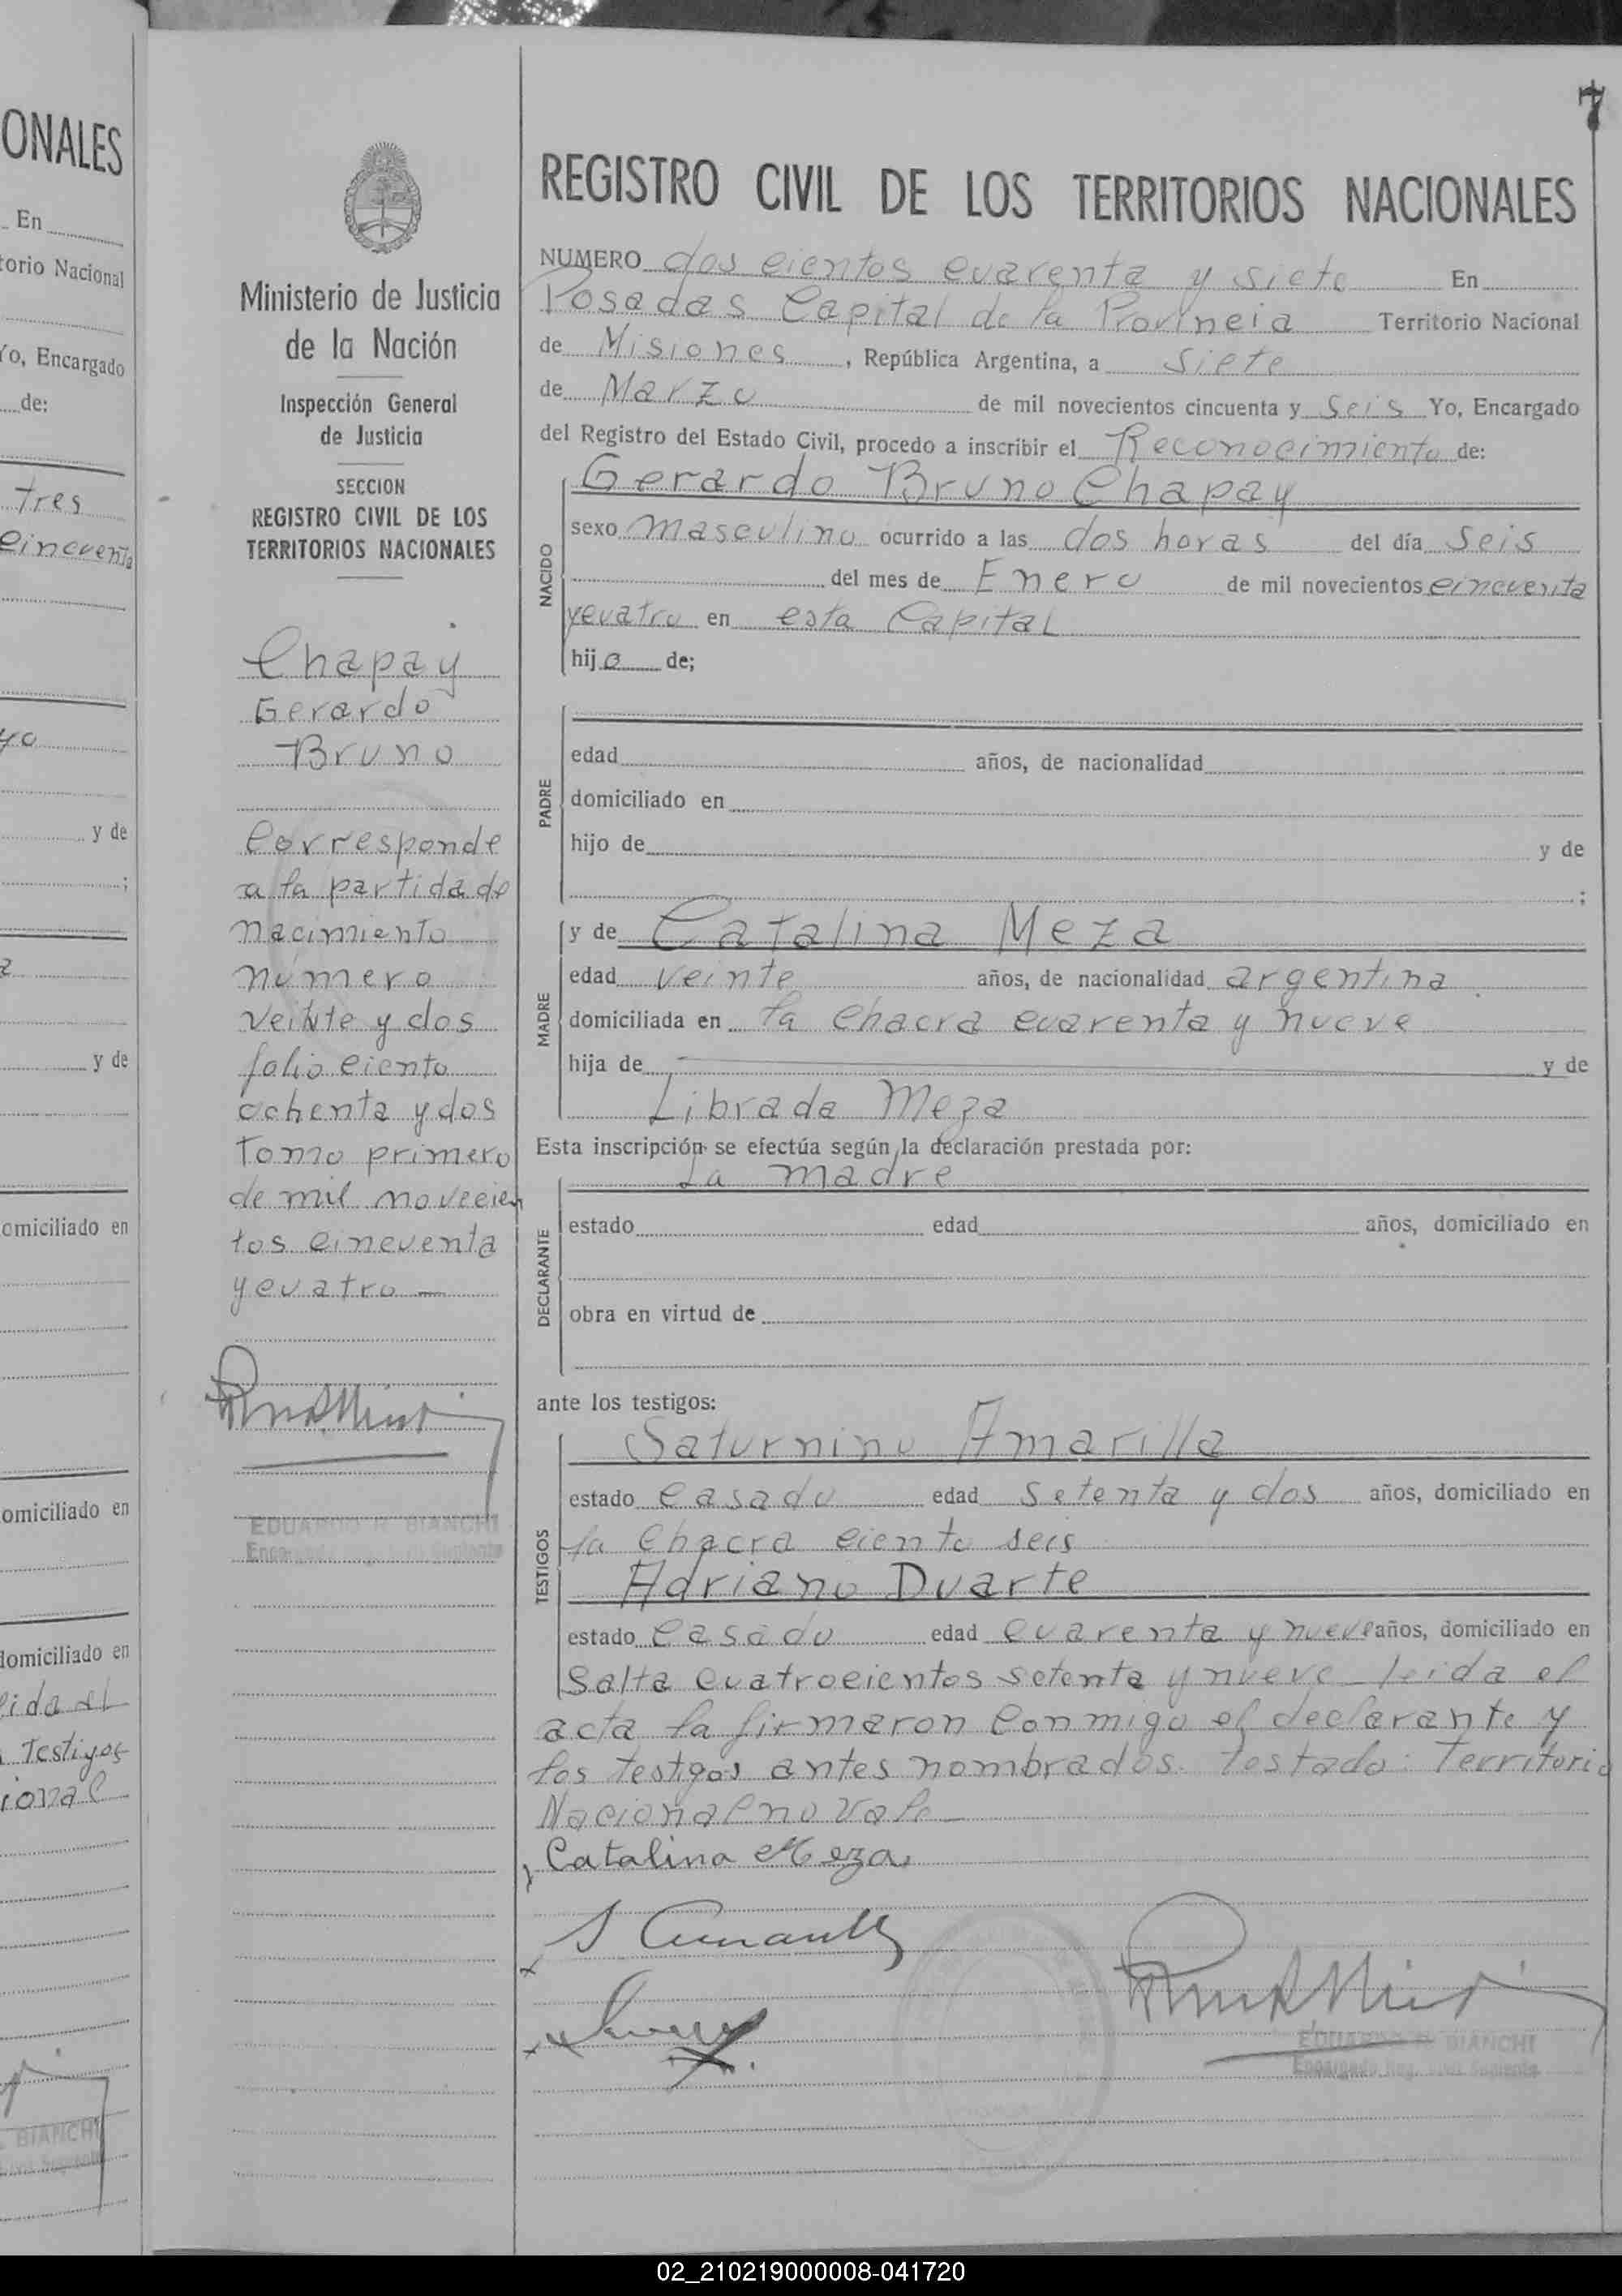 ONALES
En
torio Nacional
Yo, Encargado
de:
tres
cincuenta
yo
y de
;
a
y de
omiciliado en
omiciliado en
domiciliado en
eida el
Testigos
ional
BIANCHI
7
Ministerio de Justicia
de la Nación
Inspección General
de Justicia
SECCION
REGISTRO CIVIL DE LOS
TERRITORIOS NACIONALES
Chapay
Gerardo
Bruno
Corresponde
a la partida de
nacimiento
número
veinte y dos
folio ciento
ochenta y dos
tomo primero
de mil novecien
tos cincuenta
y cuatro —
EDUARDO R. BIANCHI
REGISTRO CIVIL DE LOS TERRITORIOS NACIONALES
NUMERO dos cientos cuarenta y siete En
Posadas Capital de la Provincia Territorio Nacional
de Misiones, República Argentina, a siete
de Marzo de mil novecientos cincuenta y seis Yo, Encargado
del Registro del Estado Civil, procedo a inscribir el Reconocimiento de:
NACIDO
Gerardo Bruno Chapay
sexo masculino ocurrido a las dos horas del día seis
del mes de Enero de mil novecientos cincuenta
y cuatro en esta Capital
hijo de;
PADRE
edad años, de nacionalidad
domiciliado en
hijo de y de
;
MADRE
y de Catalina Meza
edad veinte años, de nacionalidad argentina
domiciliada en la chacra cuarenta y nueve
hija de — y de
Librada Meza
Esta inscripción se efectúa según la declaración prestada por:
DECLARANTE
La madre
estado edad años, domiciliado en
obra en virtud de
ante los testigos:
TESTIGOS
Saturnino Amarilla
estado casado edad setenta y dos años, domiciliado en
la chacra ciento seis
Adriano Duarte
estado casado edad cuarenta y nueve años, domiciliado en
Salta cuatrocientos setenta y nueve leida el
acta la firmaron conmigo el declarante y
los testgos antes nombrados. testado: Territorio
Nacional no vale
Catalina Meza
EDUARDO R. BIANCHI
Encargado Reg. Civil Suplente
02_210219000008-041720